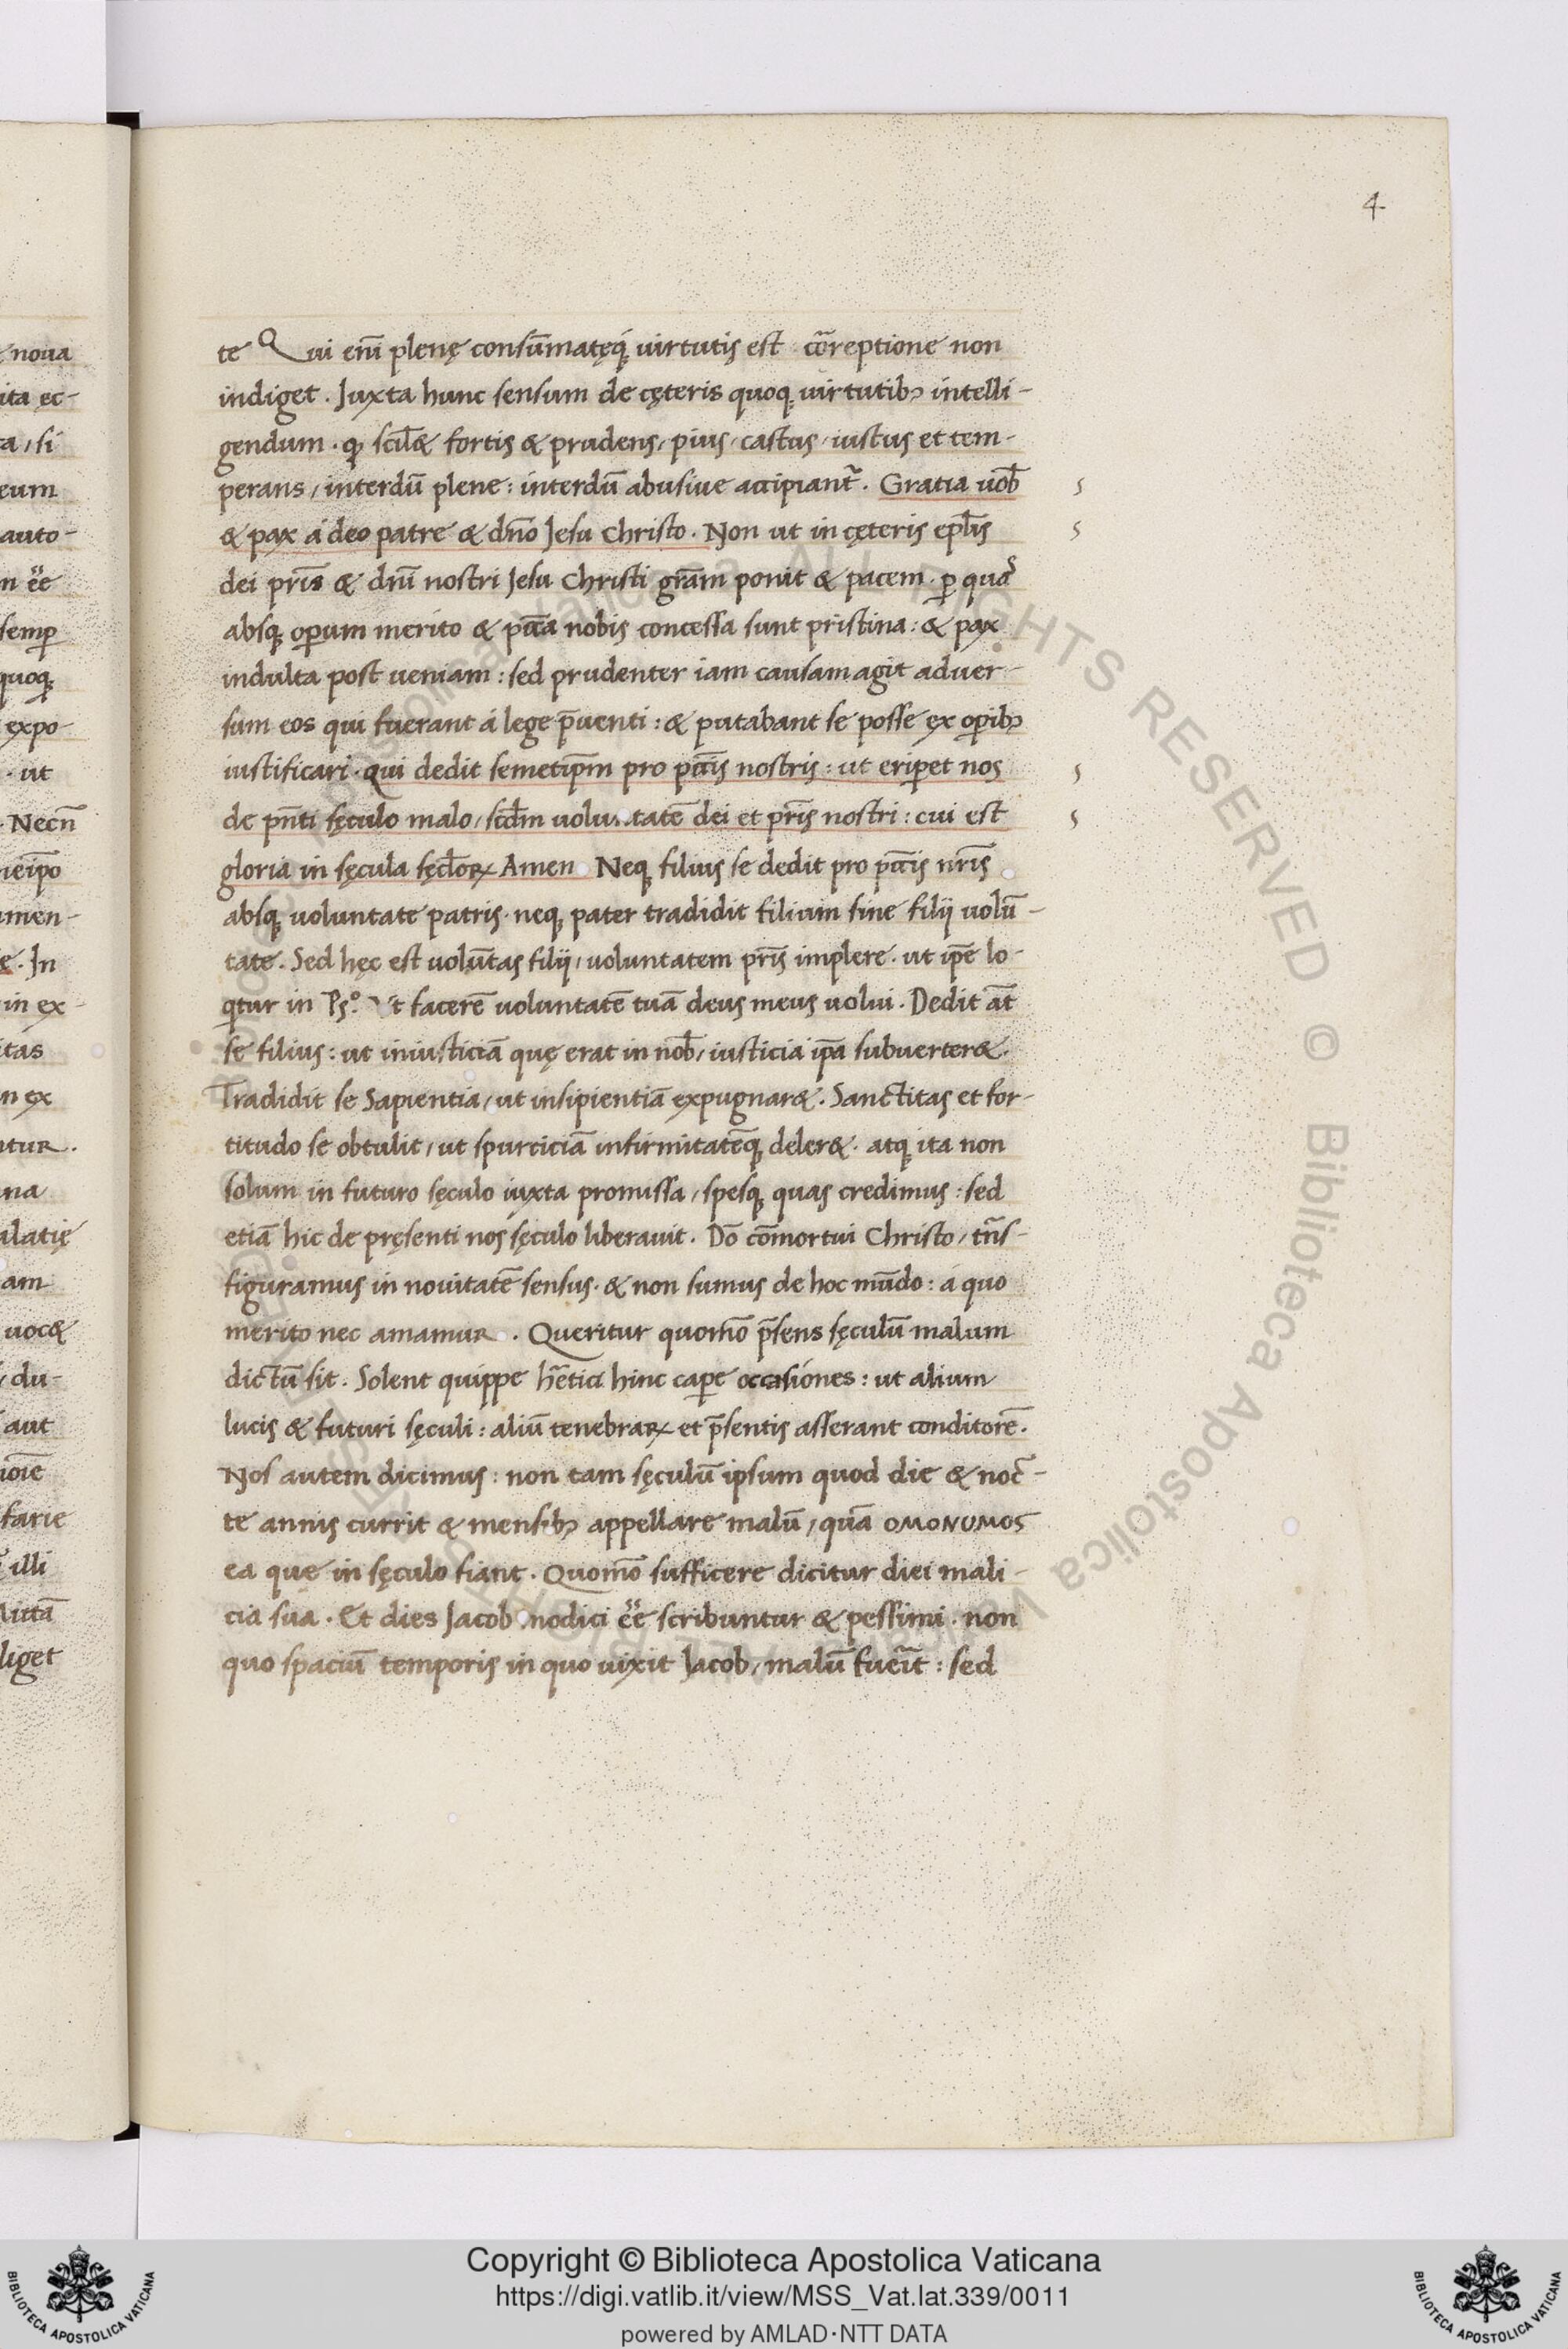 4
te Qui eni᷒ plenę consūmatęq́ꝫ uirtutis est correptione non
indiget . Juxta hunc sensum de cęteris quoqꝫ uirtutibꝫ intelli-
gendum . ꝙ scil& fortis & prudens, pius, castus, iustus et tem-
perans, interdū plene : interdū abusiue accipiant᷑ . Gratia uob̄
& pax á deo patre & dn̄o Jesu Christo . Non ut in cęteris epl̄is
dei pr̄is & dn̄i nostri Jesu Christi gr̄am ponit & pacem . ꝑ quā
absqꝫ oꝑum merito & pc̄ca nobis concessa sunt pristina : & pax
indulta post ueniam : sed prudenter iam causam agit aduer-
sum eos qui fuerant á lege p̄uenti : & putabant se posse ex oꝑibꝫ
iustificari . qui dedit semetip̄m pro pc̄cis nostris : ut eriꝑet nos
de pn̄ti sęculo malo, scd̄m uoluntatē dei et pr̄is nostri : cui est
gloria in sęcula sęcl̄oꝝ Amen Neqꝫ filius se dedit pro pc̄cis nr̄is
absqꝫ uoluntate patris . neqꝫ pater tradidit filium sine filij uolū-
tate . Sed hęc est uolūtas filij, uoluntatem pr̄is implere . ut ip̄e lo-
qtur in Ps.º Ut facerē uoluntatē tuā deus meus uolui . Dedit at̄
se filius : ut iniusticiā quę erat in nob̄, iusticia ip̄a subuerter& .
Tradidit se Sapientia, ut insipientiā expugnar& . Sanctitas et for-
titudo se obtulit, ut spurciciā infirmitatēqꝫ deler& . atqꝫ ita non
solum in futuro sęculo iuxta promissa, spesqꝫ quas credimus : sed
etiā hic de pręsenti nos sęculo liberauit . Dō cōmortui Christo, tn̄s-
figuramus in nouitatē sensus . & non sumus de hoc mūdo : á quo
merito nec amamur . Queritur quomō p̄sens sęculū malum
dictū sit . Solent quippe hr̄etici hinc caꝑe occasiones : ut alium
lucis & futuri sęculi : aliū tenebraꝝ et p̄sentis asserant conditorē .
Nos autem dicimus : non tam sęculū ipsum quod die & noc-
te annis currit & mensibꝫ appellare malū, quā OMONUMOS
ea quę in sęculo fiant . Quomō sufficere dicitur diei mali-
cia sua . Et dies Jacob modici ēē scribuntur & pessimi . non
quo spaciū temporis in quo uixit Jacob, malū fuerit : sed
noua
ita ec-
a, si
eum
auto-
n ēē
semꝑ
quoqꝫ
expo-
. ut
. Necn̄
men-
ę . In
in ex-
itas
n ex
tur .
na
alatię
am
uoc&
, du-
aut
farie
illi
liget
ALL RIGHTS RESERVED © Biblioteca Apostolica Vaticana
Copyright © Biblioteca Apostolica Vaticana
https://digi.vatlib.it/view/MSS_Vat.lat.339/0011
powered by AMLAD·NTT DATA
BIBLIOTECA APOSTOLICA VATICANA
BIBLIOTECA APOSTOLICA VATICANA